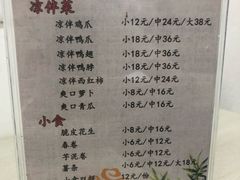 凉伴菜
凉伴鸡爪 小12元/中24元/大38元
凉伴鸭爪 小18元/中36元
凉伴鸭翅 小18元/中36元
凉伴鸭脖 小18元/中36元
凉伴西红柿 小12元/中24元
爽口萝卜 小8元/中16元
爽口青瓜 小8元/中16元
小食
脆皮花生 小6元/中12元
春卷 小6元/中12元
芋泥卷 小6元/中12元
薯条 小6元/中12元/大18元
12元/份